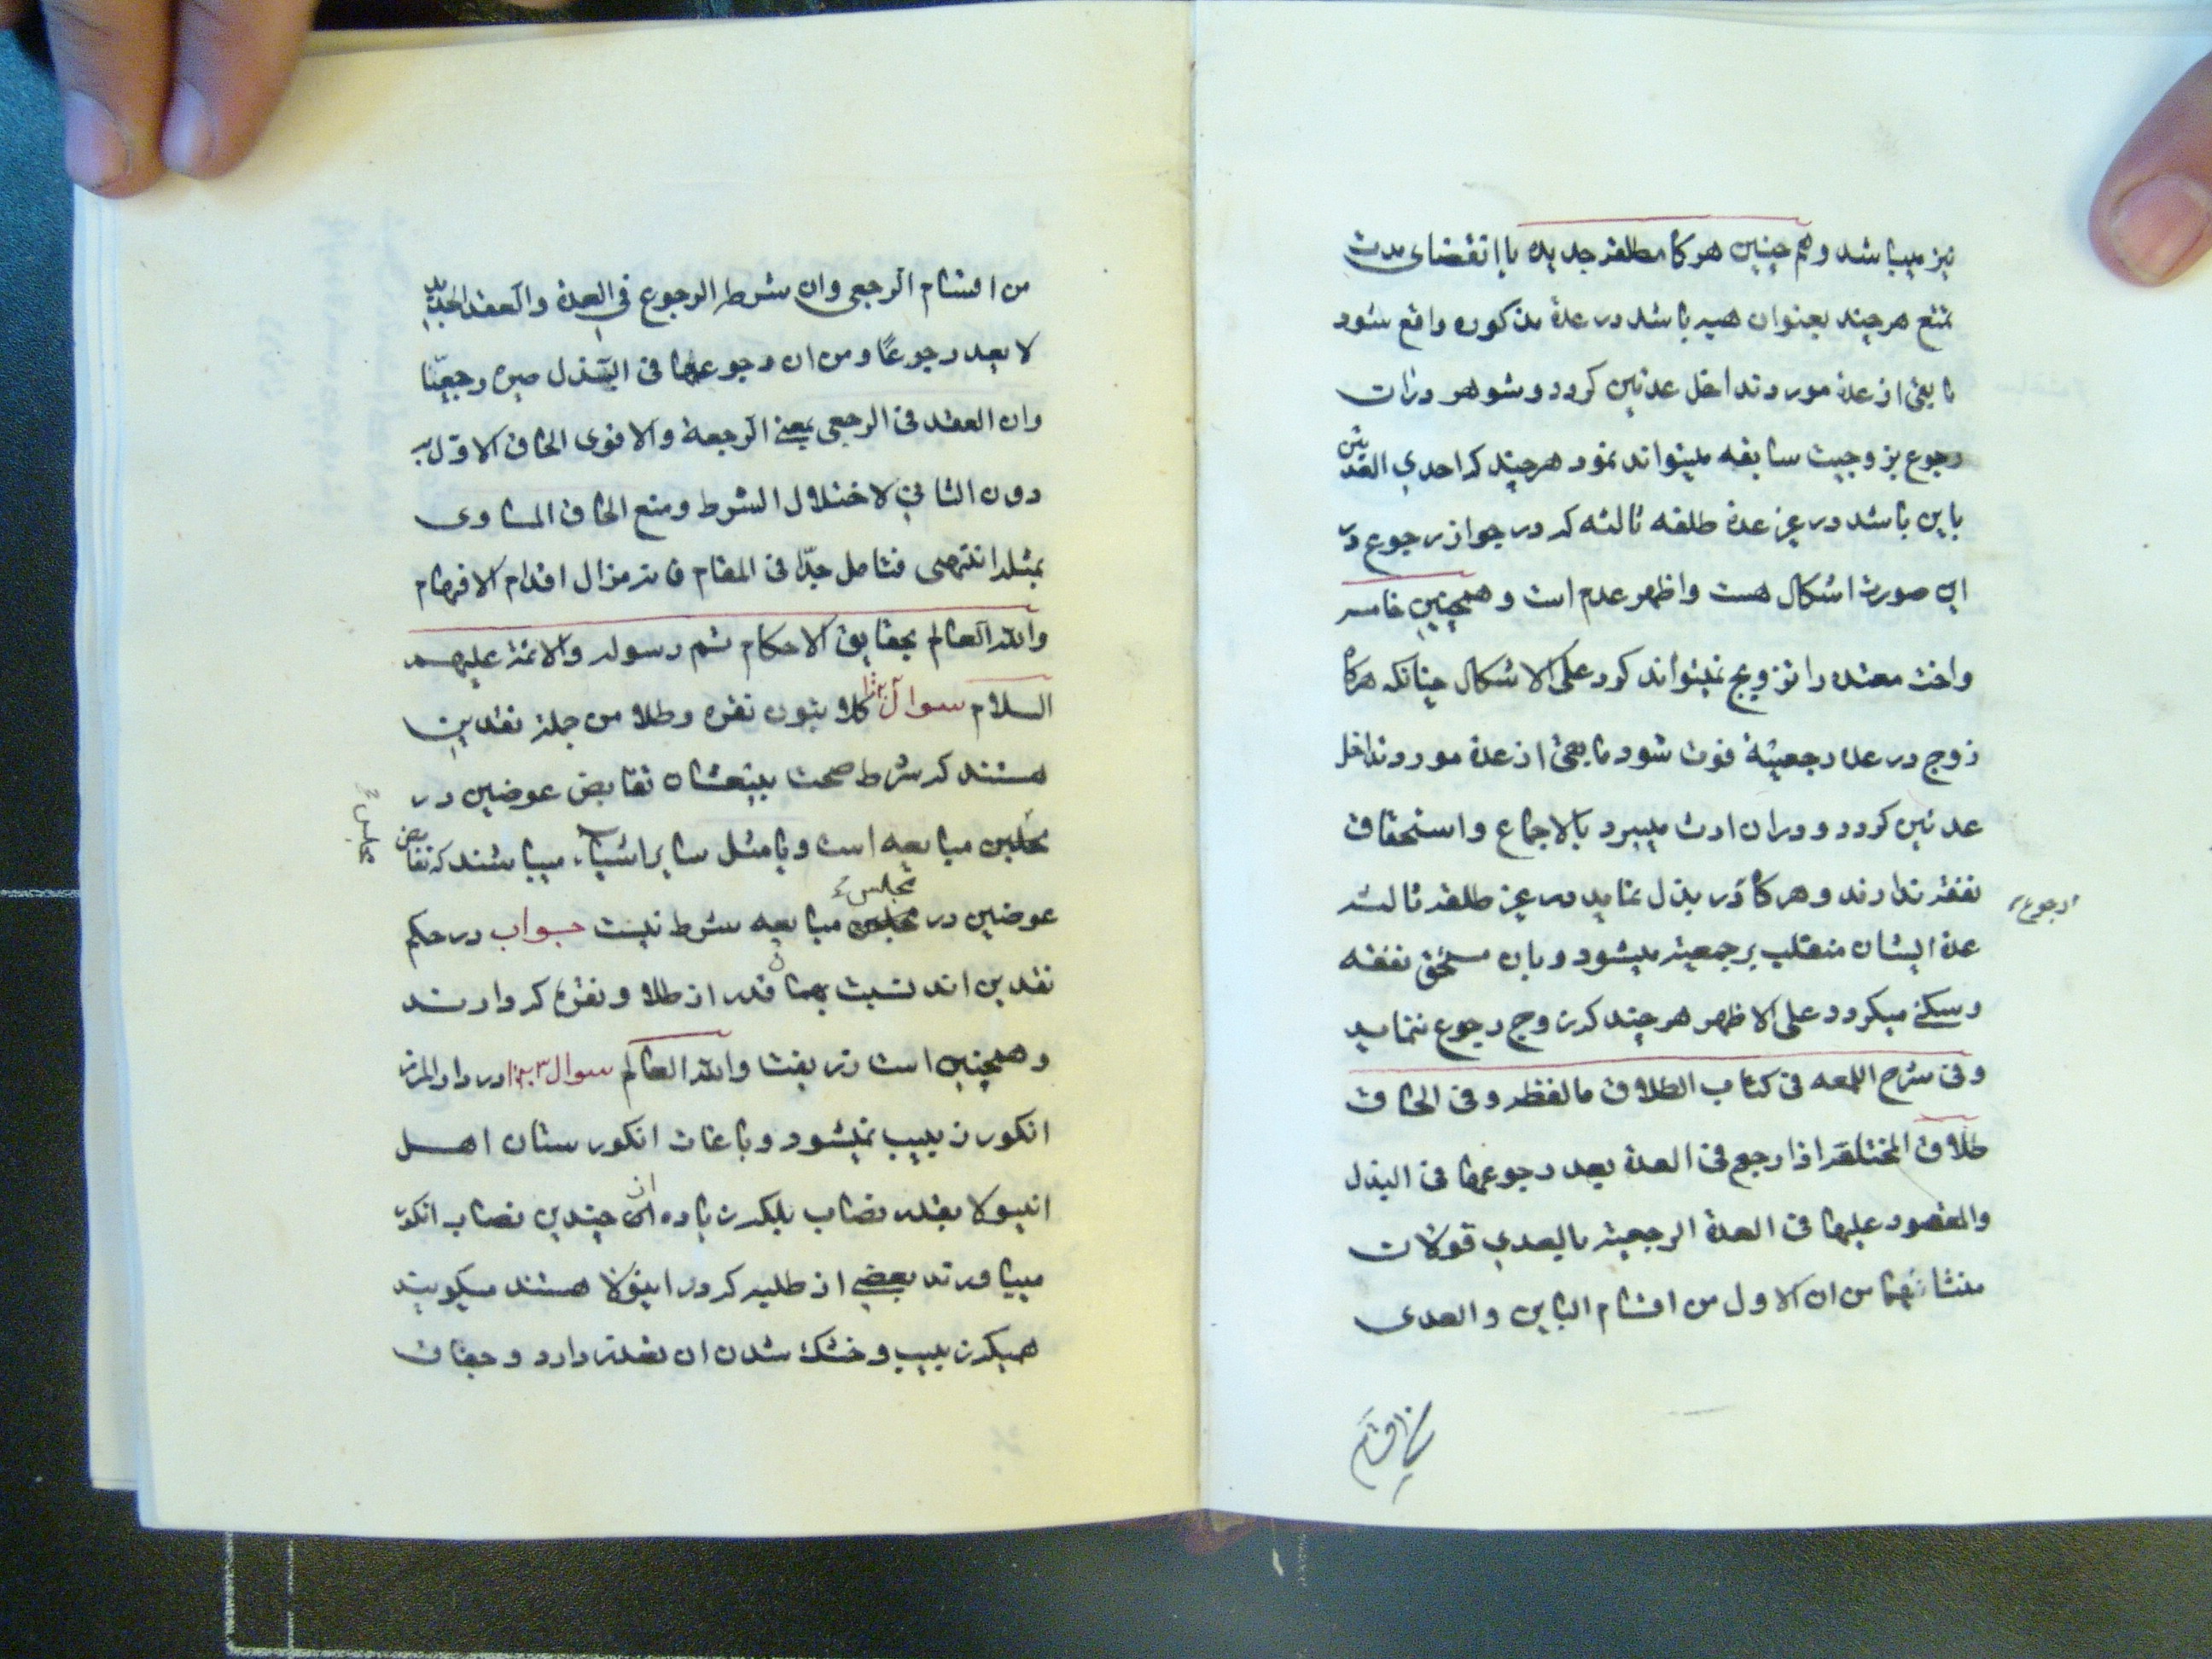 نیز میباشد و هم چنین هرکاه مطلقه جدیده با انقضای مدت
تمتع هرچند بعنوان هبه باشد در عدة مذکوره واقع شود
مابقی از عدة مورد تداخل عدتین کردد و شوهر در ان
رجوع بزوجیت سابقه میتواند نمود هرچند که احدی العدتین
باین باشد در غیر عدة طلقه ثالثه که در جواز رجوع در
این صورت اشکال هست و اظهر عدم است و همچنین خامسه
و اخت معتده را تزویج نمیتواند کرد علی الاشکال چنانکه هرکاه
زوج در عده رجعیة فوت شود مابقی از عدة مورد تداخل
عدتین کردد و در ان ارث میبرد بالاجماع و استحقاق
نفقه ندارند و هرکاه در بذل نماید در غیر طلقه ثالثه
رجوع
عدة ایشان منقلب برجعیة میشود و بان مستحق نفقه
و سکنی میکردد علی الاظهر هرچند که زوج رجوع ننماید
و فی شرح اللمعه فی کتاب الطلاق ما لفظه و فی الحاق
طلاق المختلعة اذا رجع فی العدة بعد رجوعها فی البذل
والمعقود علیها فی العدة الرجعیة بالعدی قولان
منشائهما من ان الاول من اقسام الباین والعدی
من اقسام
من اقسام الرجعی وان شرط الرجوع فی العدة والعقد الجدید
لا یعد رجوعًا ومن ان رجوعها فی البذل صیره رجعیًا
وان العقد فی الرجعی بمعنی الرجعة والاقوی الحاق الاول به
دون الثانی لاختلال الشرط ومنع الحاق المساوی
بمثله انتهی فتامل جدّا فی المقام فانه مزال اقدام الافهام
والله العالم بحقایق الاحکام ثم رسوله والائمة علیهم
السلام سوال کلابتون نقره و طلا من جمله نقدین
هستند که شرط صحت بیعشان تقابض عوضین در
مجلس مبایعه است و یا مثل سایر اشیاء میباشند که تقابض
مجلس
عوضین در مجلس مبایعه شرط نیست جواب در حکم
نقدین اند نسبت بهمان قدر از طلا و نقره که دارند
و همچنین است زربفت والله العالم سوال در دار المرز
انکور زبیب نمیشود و باغات انکورستان اهل
اینولا بقدر نصاب بلکه زیاده از چندین نصاب انکور
میاورند بعضی از طلبه که در اینولا هستند میکویند
همیکه زبیب و خشک شدن ان تعذر دارد و جفاف